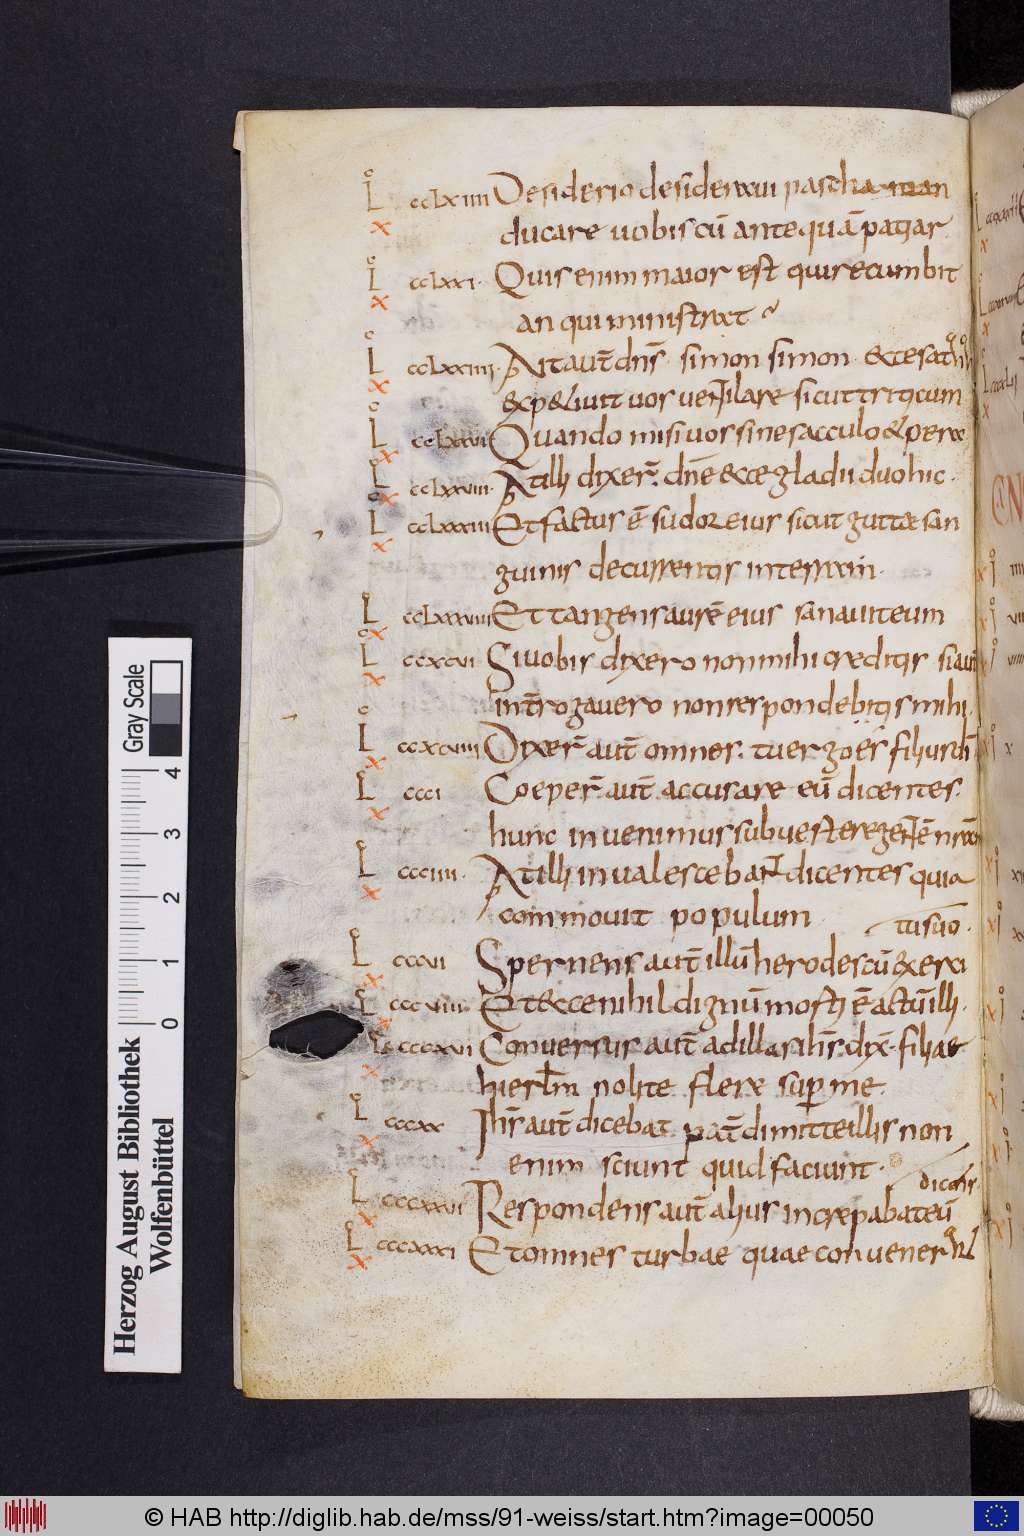 L cclxiiii Desiderio desideraui pascha man
x ducare uobiscū antequā patiar
L cclxxi. Quis enim maior est qui recumbit
x an qui ministrat
L cclxxiiii. Ait aut̄ dn̄s. simon simon. ecce sat
x expetiuit uos uentilare sicut triticum
L cclxxvi Quando misi uos sine sacculo et pera
L cclxxviii. At illi dixer̄. dn̄e ecce gladii duo hic.
L cclxxxiii Et factus ē sudor eius sicut guttae san
x guinis decurrentis in terram.
L cclxxxviiii Et tangens aurē eius sanauit eum
L ccxcvi Si uobis dixero non mihi creditis si aut̄
x int̄rogauero non respondebitis mihi.
L ccxcviiii Dixer̄ aut̄ omnes. tu ergo es filius dī
L ccci Coeper̄ aut̄ accusare eū dicentes.
x hunc inuenimus subuertere gentē nr̄ā
L ccciiii. At illi inualescebant dicentes quia
x commouit populum
tu suo.
L cccvi Spernens aut̄ illū herodes cū exerci
L cccviiii Et ecce nihil dignū morti ē actū illi.
L cccxvi Conuersus aut̄ ad illas ih̄s. dix̄. filiae
x hierlm̄ nolite flere super me.
L cccxx Ih̄s aut̄ dicebat. pat̄ dimitte illis non
x enim sciunt quid faciunt.
dicens.
L cccxxvi Respondens aut̄ alius increpabat eū
L cccxxxi Et omnes turbae quae conuener
x
Herzog August Bibliothek
Wolfenbüttel
0 1 2 3 4
Gray Scale
© HAB http://diglib.hab.de/mss/91-weiss/start.htm?image=00050